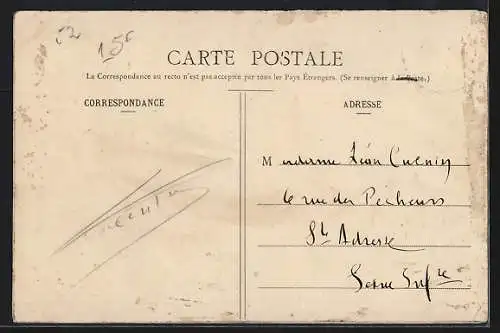 15c
CARTE POSTALE
La Correspondance au recto n'est pas acceptée par tous les Pays Étrangers. (Se renseigner à la Poste.)
CORRESPONDANCE
ADRESSE
Madame Léon Cuenin
6 rue des Pêcheurs
Ste Adresse
Seine Infre